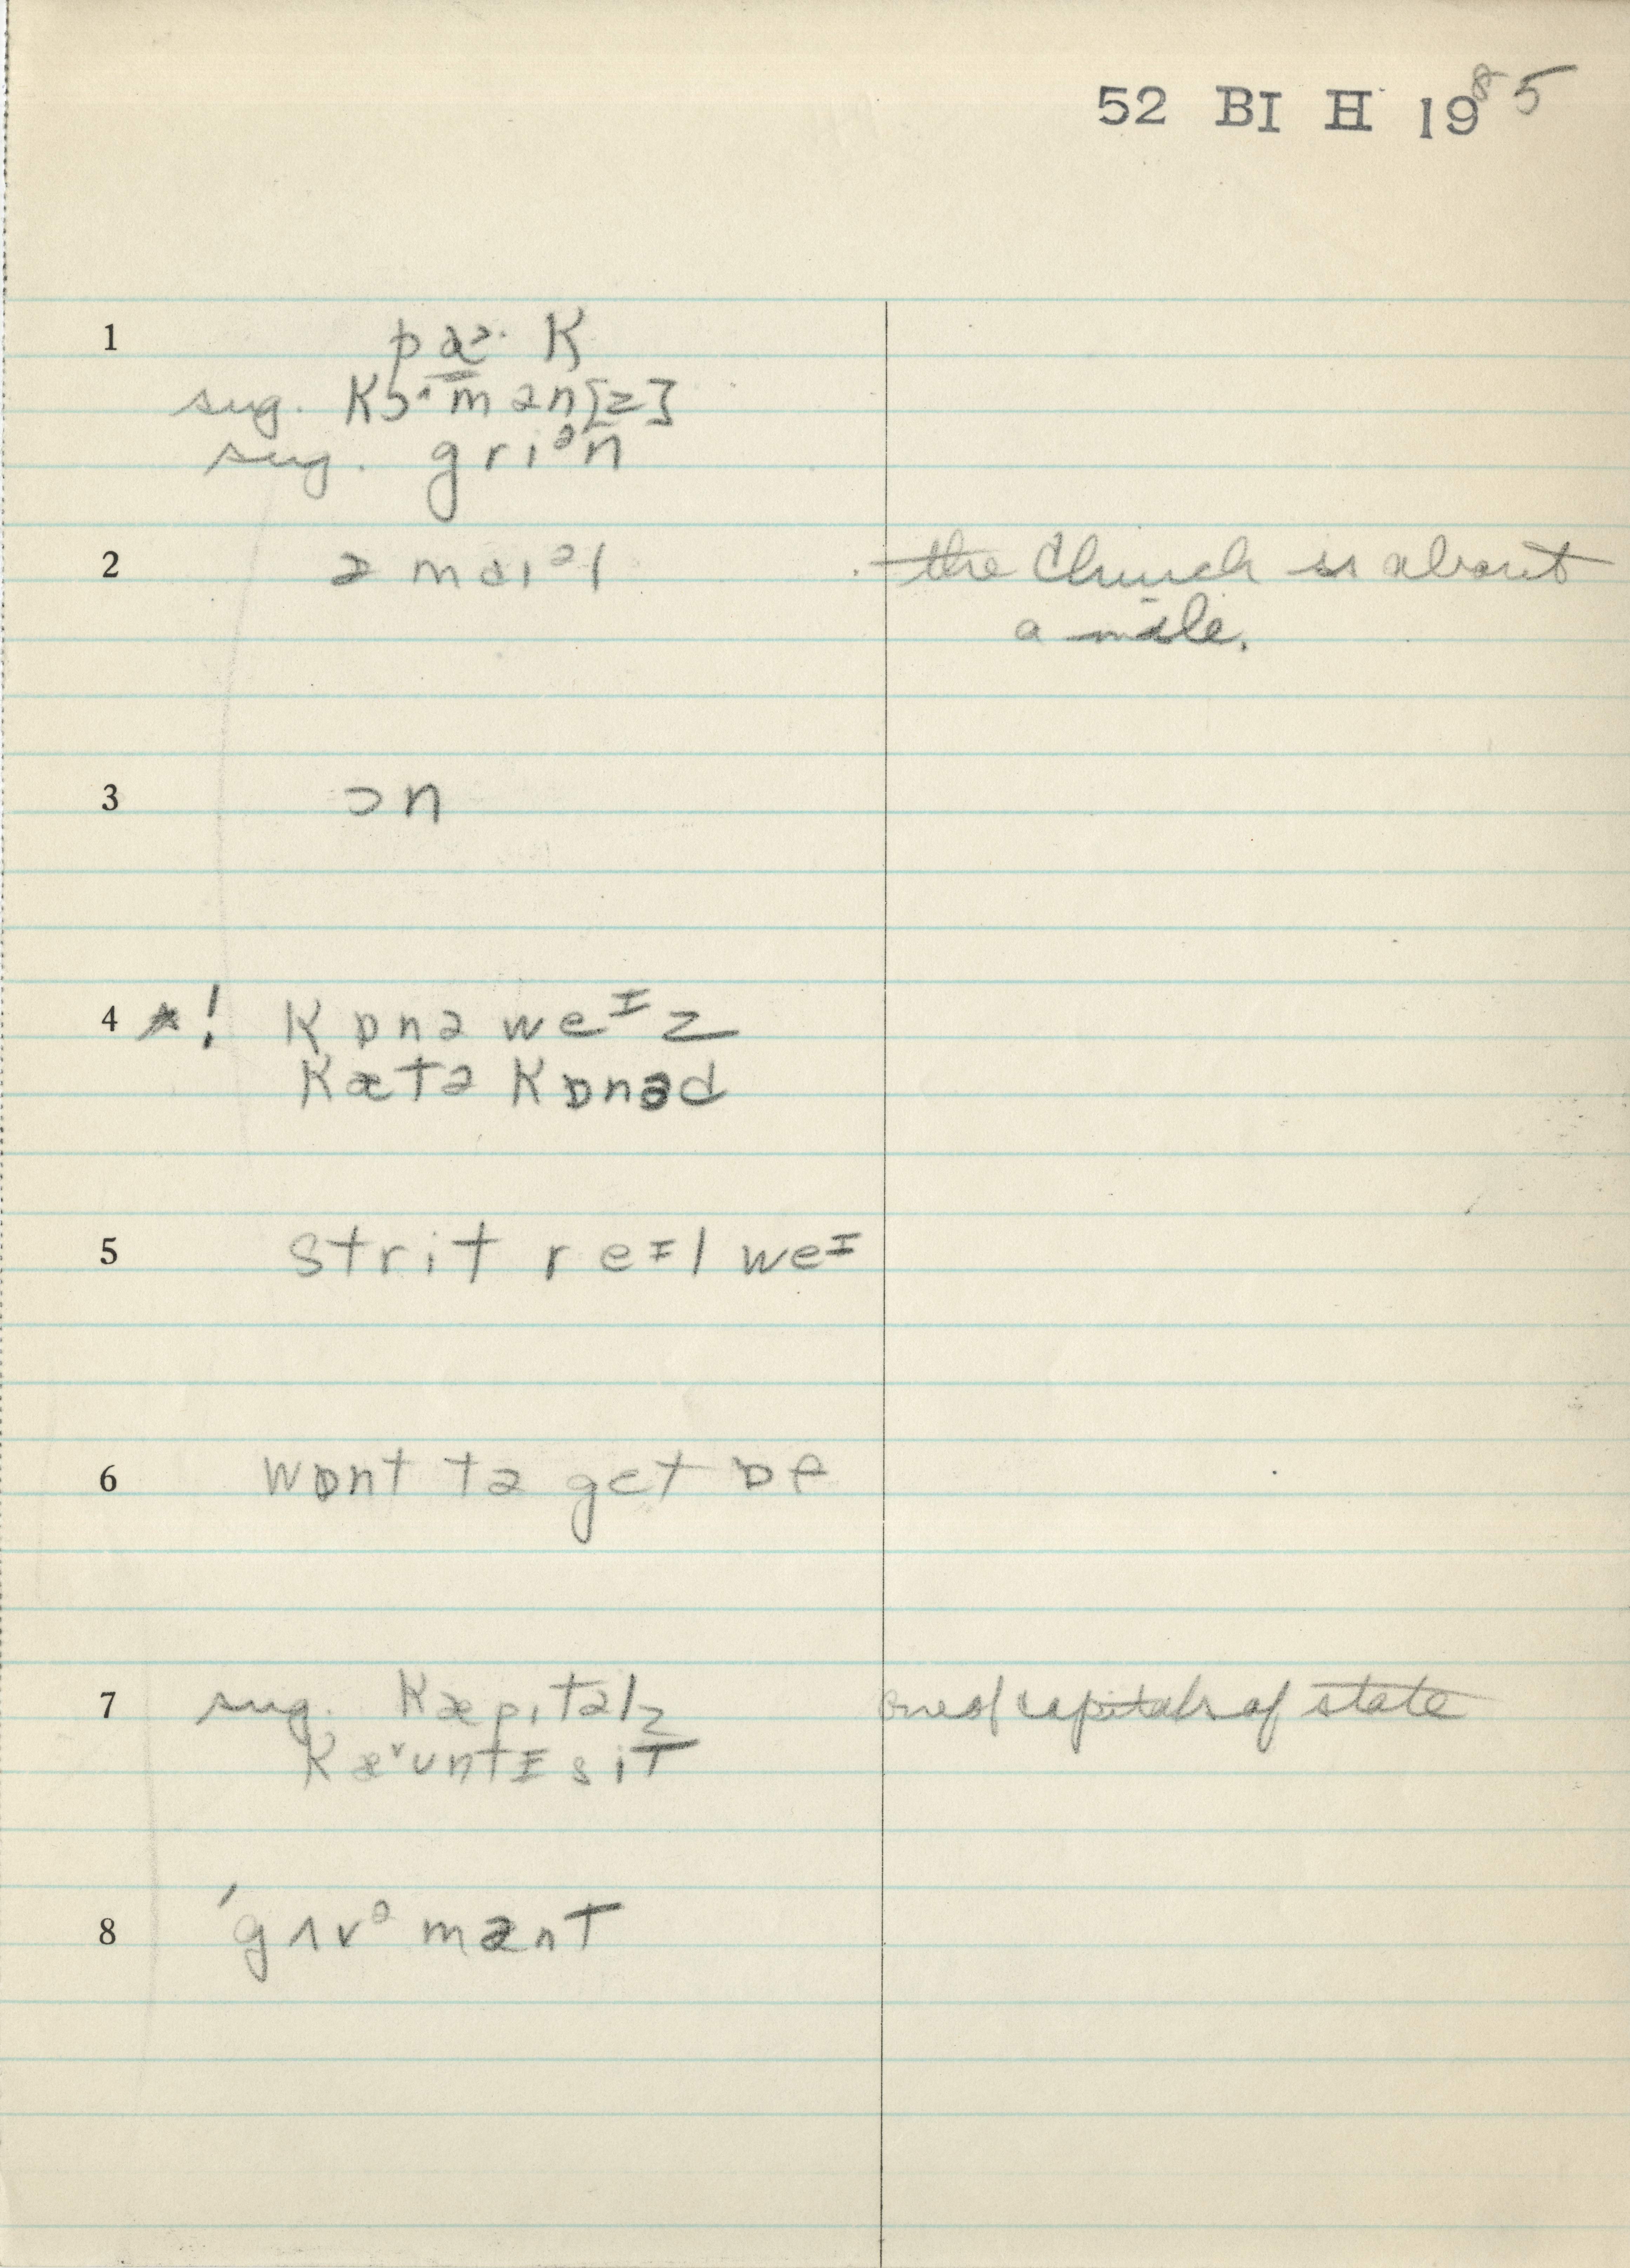 52 BI H 1985
1 pɑᵊ· K
sug. Kɔ· m ə n [z]
sug. g r i ᵊ n
2 ə m ɑ ɪ ᵊ l the Church is about
a mile.
3 ɔ n
4 *! K ɒ n ə w e ᶦ z
K æ t ə K ɒ n ə d
5 s t r i t r e ᶦ l w e ᶦ
6 w ɒ n t t ə g ɛ t ɒ f
7 sug. K æ p ɪ t ə l z one of capitals of state
K æ ˅ ʊ n t ɪ s i t
8 ˈg ʌ v ᵊ m ə n t